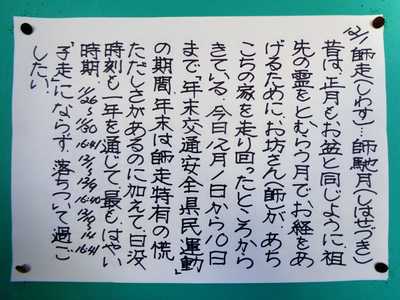 12/1 師走(しわす)…師馳月(しはせづき)
昔は、正月もお盆と同じように、祖
先の霊をとむらう月で、お経をあ
げるために、お坊さん(師)が、あち
こちの家を走り回ったところから
きている。今日12月1日から10日
まで「年末交通安全県民運動」
の期間。年末は師走特有の慌
ただしさがあるのに加えて、日没
時刻も一年を通じて最もはやい
時期。11/26~11/30 16:41 12/1~12/9 16:40 16:41
「子走」にならず、落ちついて過ご
したい。